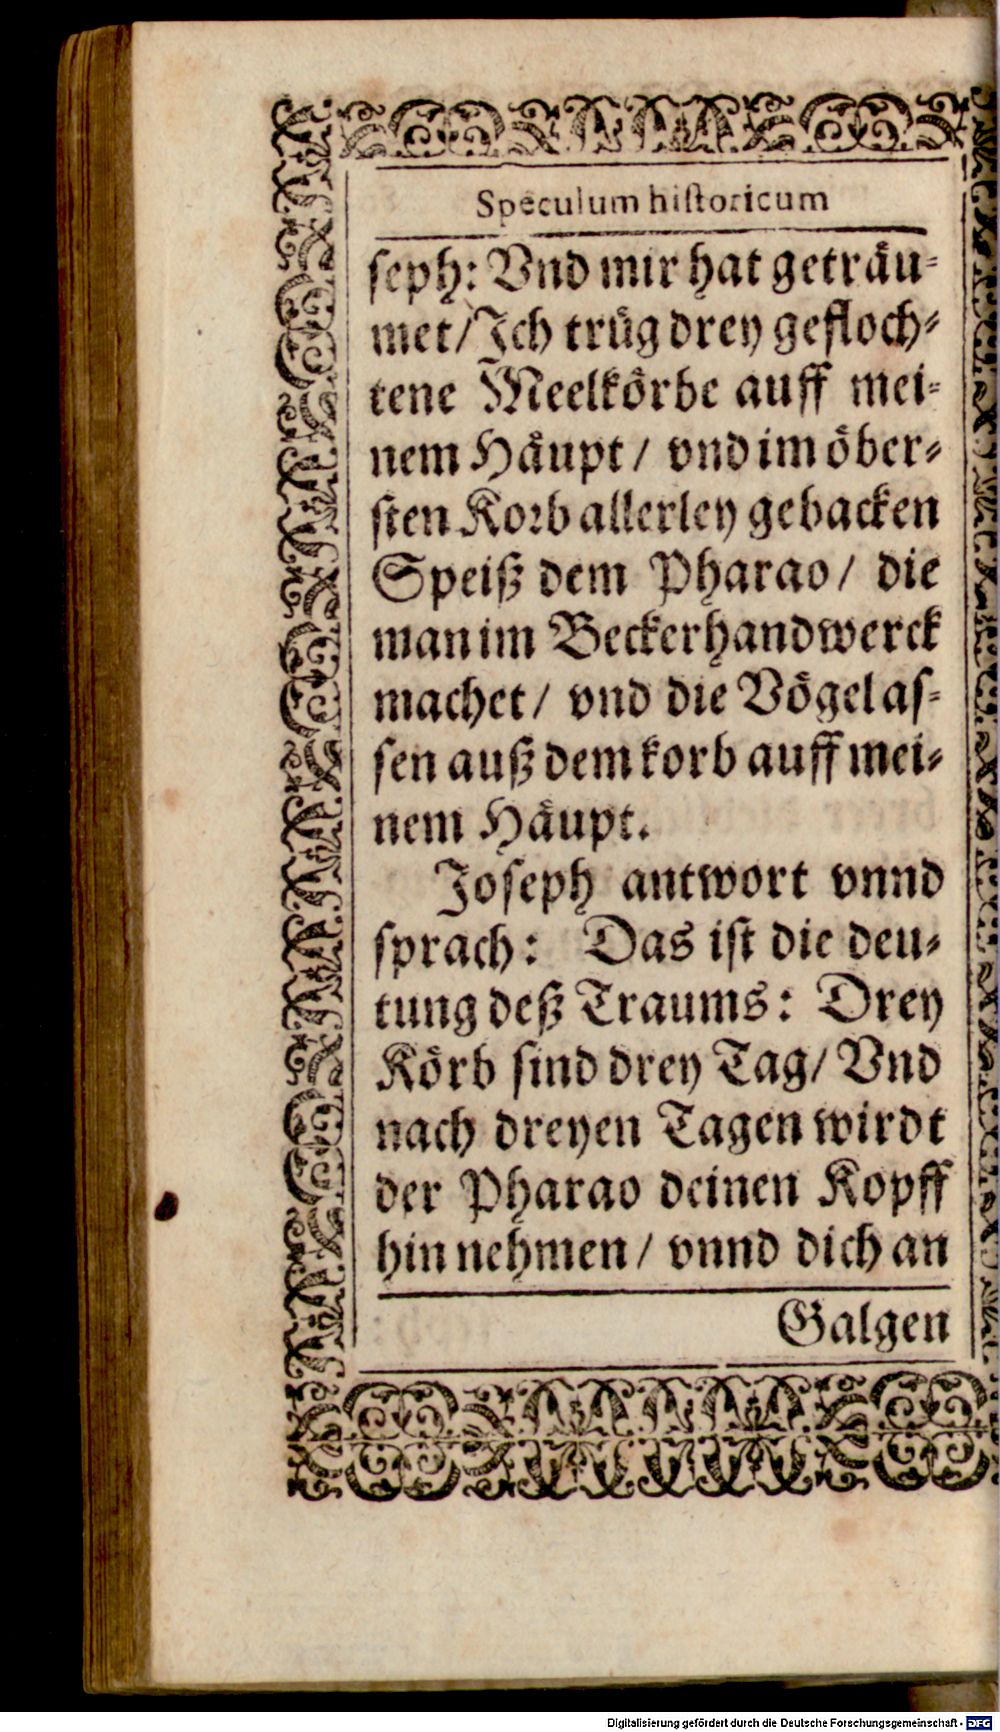 Speculum hiſtoricum
ſeph: Vnd mir hat geträu-
met/ Ich trüg drey gefloch-
tene Meelkörbe auff mei-
nem Häupt / vnd im öber-
ſten Korb allerley gebacken
Speiß dem Pharao / die
man im Beckerhandwerck
machet / vnd die Vögel aſ-
ſen auß dem korb auff mei-
nem Häupt.
Joſeph antwort vnnd
ſprach: Das iſt die deu-
tung deß Traums: Drey
Körb ſind drey Tag / Vnd
nach dreyen Tagen wirdt
der Pharao deinen Kopff
hin nehmen / vnnd dich an
Galgen
Digitalisierung gefördert durch die Deutsche Forschungsgemeinschaft - DFG